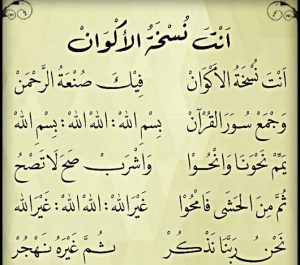 اَنْتَ نُسْخَةُ الْأَكْوَانْ
اَنْتَ نُسْخَةُ الْأَكْوَانْ فِيْكَ صُنْعَةُ الرَّحْمَنْ
وَجَمْعُ سُوَرِ الْقُرْآنْ بِسْمِ اللهْ : اللهْ اللهْ : بِسْمِ اللهْ
يَمِّمْ نَحْوَنَا وَانْحُـوْا وَاشْرَبْ صَحَّ لَا تَصْحُ
ثُمَّ مِنَ الْحَشَى فَامْحُوْا غَيْرَاللهْ : اللهْ اللهْ : غَيْرَاللهْ
نَحْنُ رَبَّنَا نَذْكُرْ ثُمَّ غَيْرَهُ نَهْجُرْ